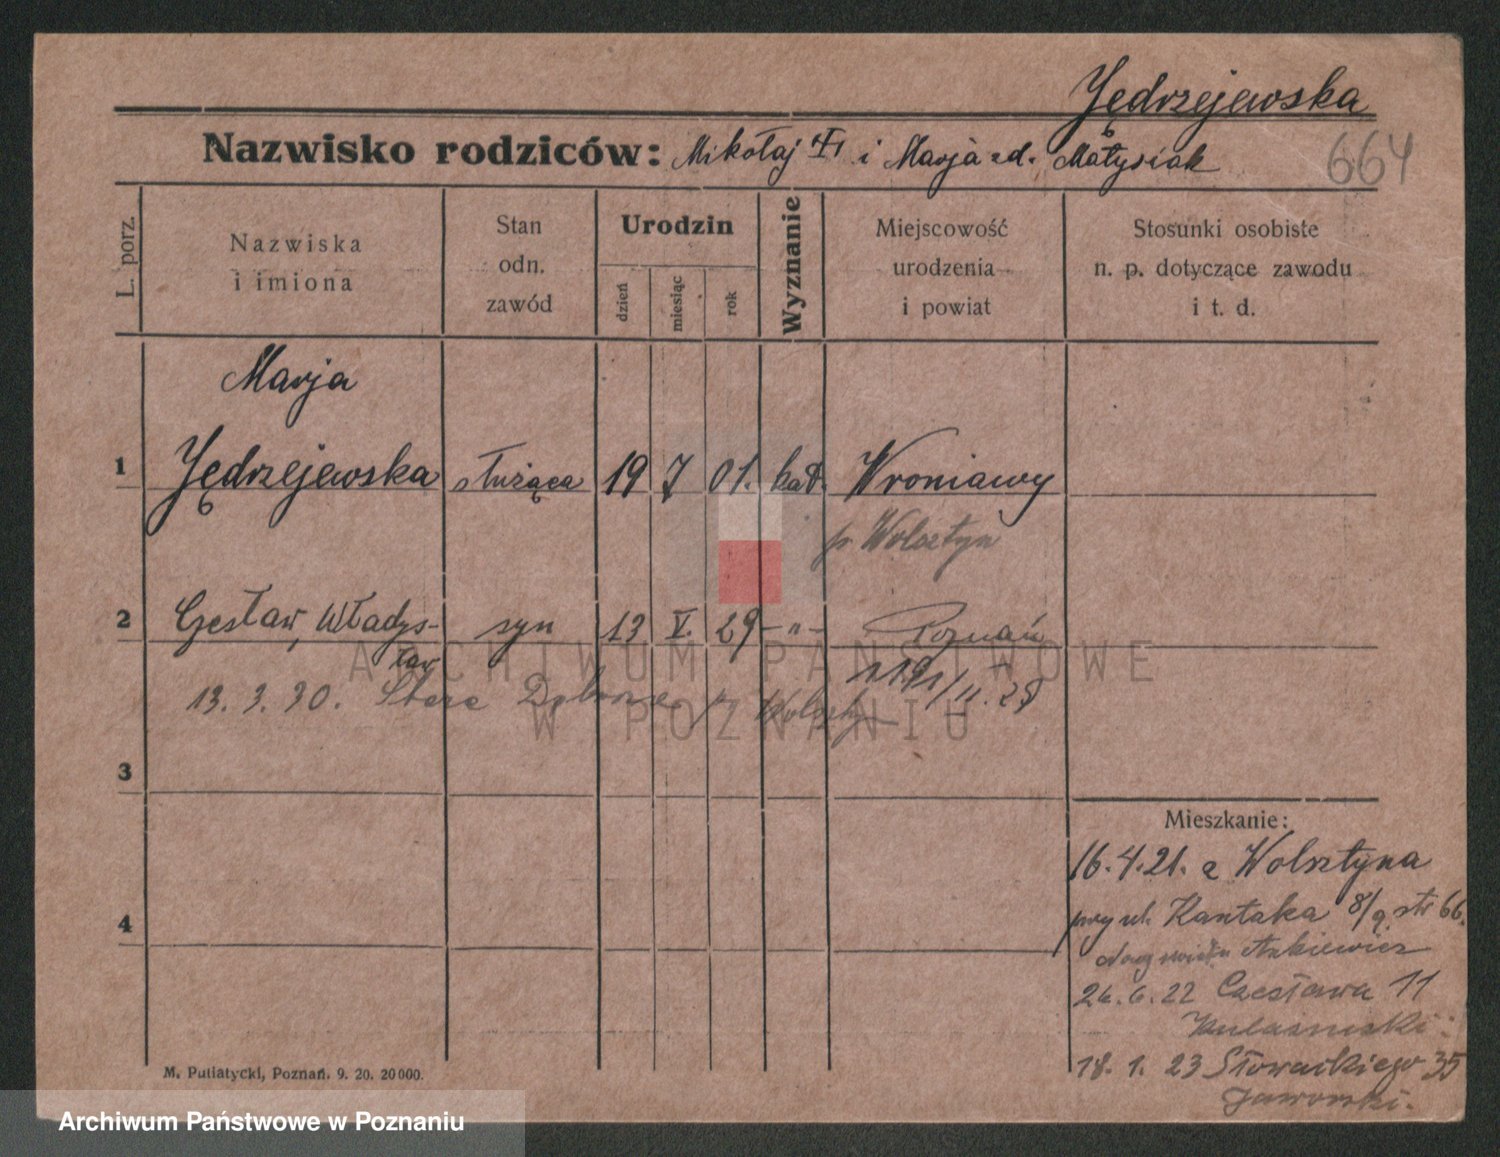 Jędrzejewska
Nazwisko rodziców: Mikołaj i Marja zd. Matysiak
664
L. porz.
Nazwiska i imiona
Stan odn. zawód
Urodzin
dzień
miesiąc
rok
Wyznanie
Miejscowość urodzenia i powiat
Stosunki osobiste n. p. dotyczące zawodu i t. d.
Marja
1 Jędrzejewska służąca 19 7 01. kat. Wroniawy
p. Wolsztyn
2 Czesław, Władys- syn 13 V. 29 -"- Poznań
ław
13. 3. 30. Stare
3
4
Mieszkanie:
16.4.21. z Wolsztyna
przy ul. Kantaka 8/9. str 66.
26.6.22 Czesława 11
18. 1. 23 Słowackiego 35
Jaworski.
M. Putiatycki, Poznań. 9. 20. 20000.
ARCHIWUM PAŃSTWOWE
W POZNANIU
Archiwum Państwowe w Poznaniu